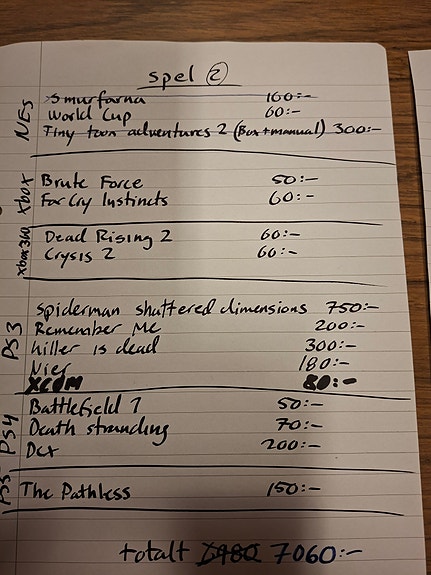 spel 2
NES
Smurfarna 160:-
World Cup 60:-
Tiny toon adventures 2 (Box+manual) 300:-
Xbox
Brute Force 50:-
Far Cry Instincts 60:-
Xbox360
Dead Rising 2 60:-
Crysis 2 60:-
PS3
spiderman shattered dimensions 750:-
Remember Me 200:-
killer is dead 300:-
Nier 180:-
XCOM 80:-
PS4
Battlefield 1 50:-
Death stranding 70:-
Dex 200:-
PS5
The Pathless 150:-
totalt 7060:-